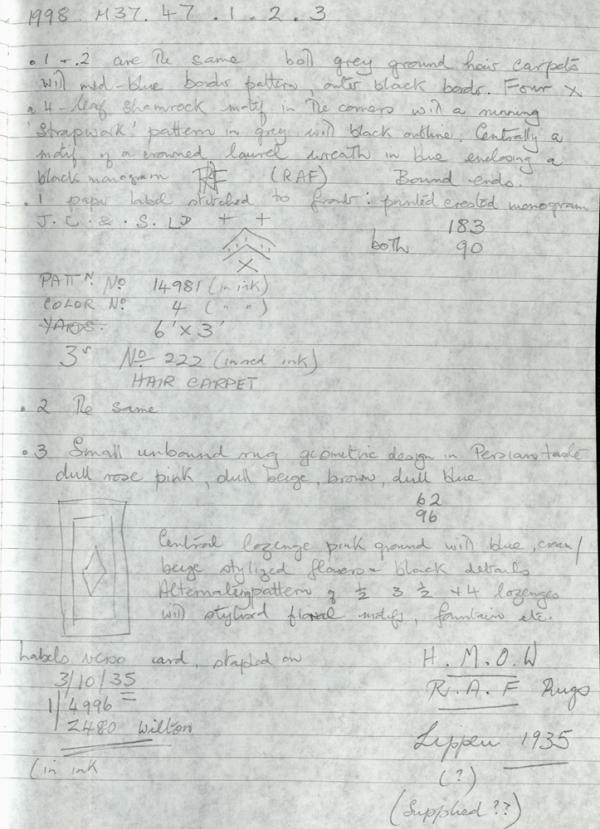 1998. M37. 47 . 1 . 2 . 3
.1 + .2 are the same both grey ground hair carpets
with mid-blue border pattern, outer black border. Four x
a 4-leaf shamrock motif in the corners with a running
'strapwork' pattern in grey with black outline. Centrally a
motif of a crowned laurel wreath in blue enclosing a
black monogram (RAF) Bound ends.
.1 paper label stitched to front: printed crested monogram
J. C. & . S. LD + +
183
both 90
PATTN. No 14981 (in ink)
COLOR No. 4 ( " " )
YARDS. 6' x 3'
3s No 222 (in red ink)
HAIR CARPET
.2 The same
.3 Small unbound rug geometric design in Persian taste
dull rose pink, dull beige, brown, dull blue
62
96
Central lozenge pink ground with blue, cream/
beige stylized flowers black details
Alternating pattern of ½ 3 ½ + 4 lozenges
with stylized floral motifs, fountains etc.
Labels verso card, stapled on
3/10/35
1/4996 =
2480 Wilton
(in ink
H.M.O.W
R.A.F Rugs
1935
(?)
(Supplied ??)